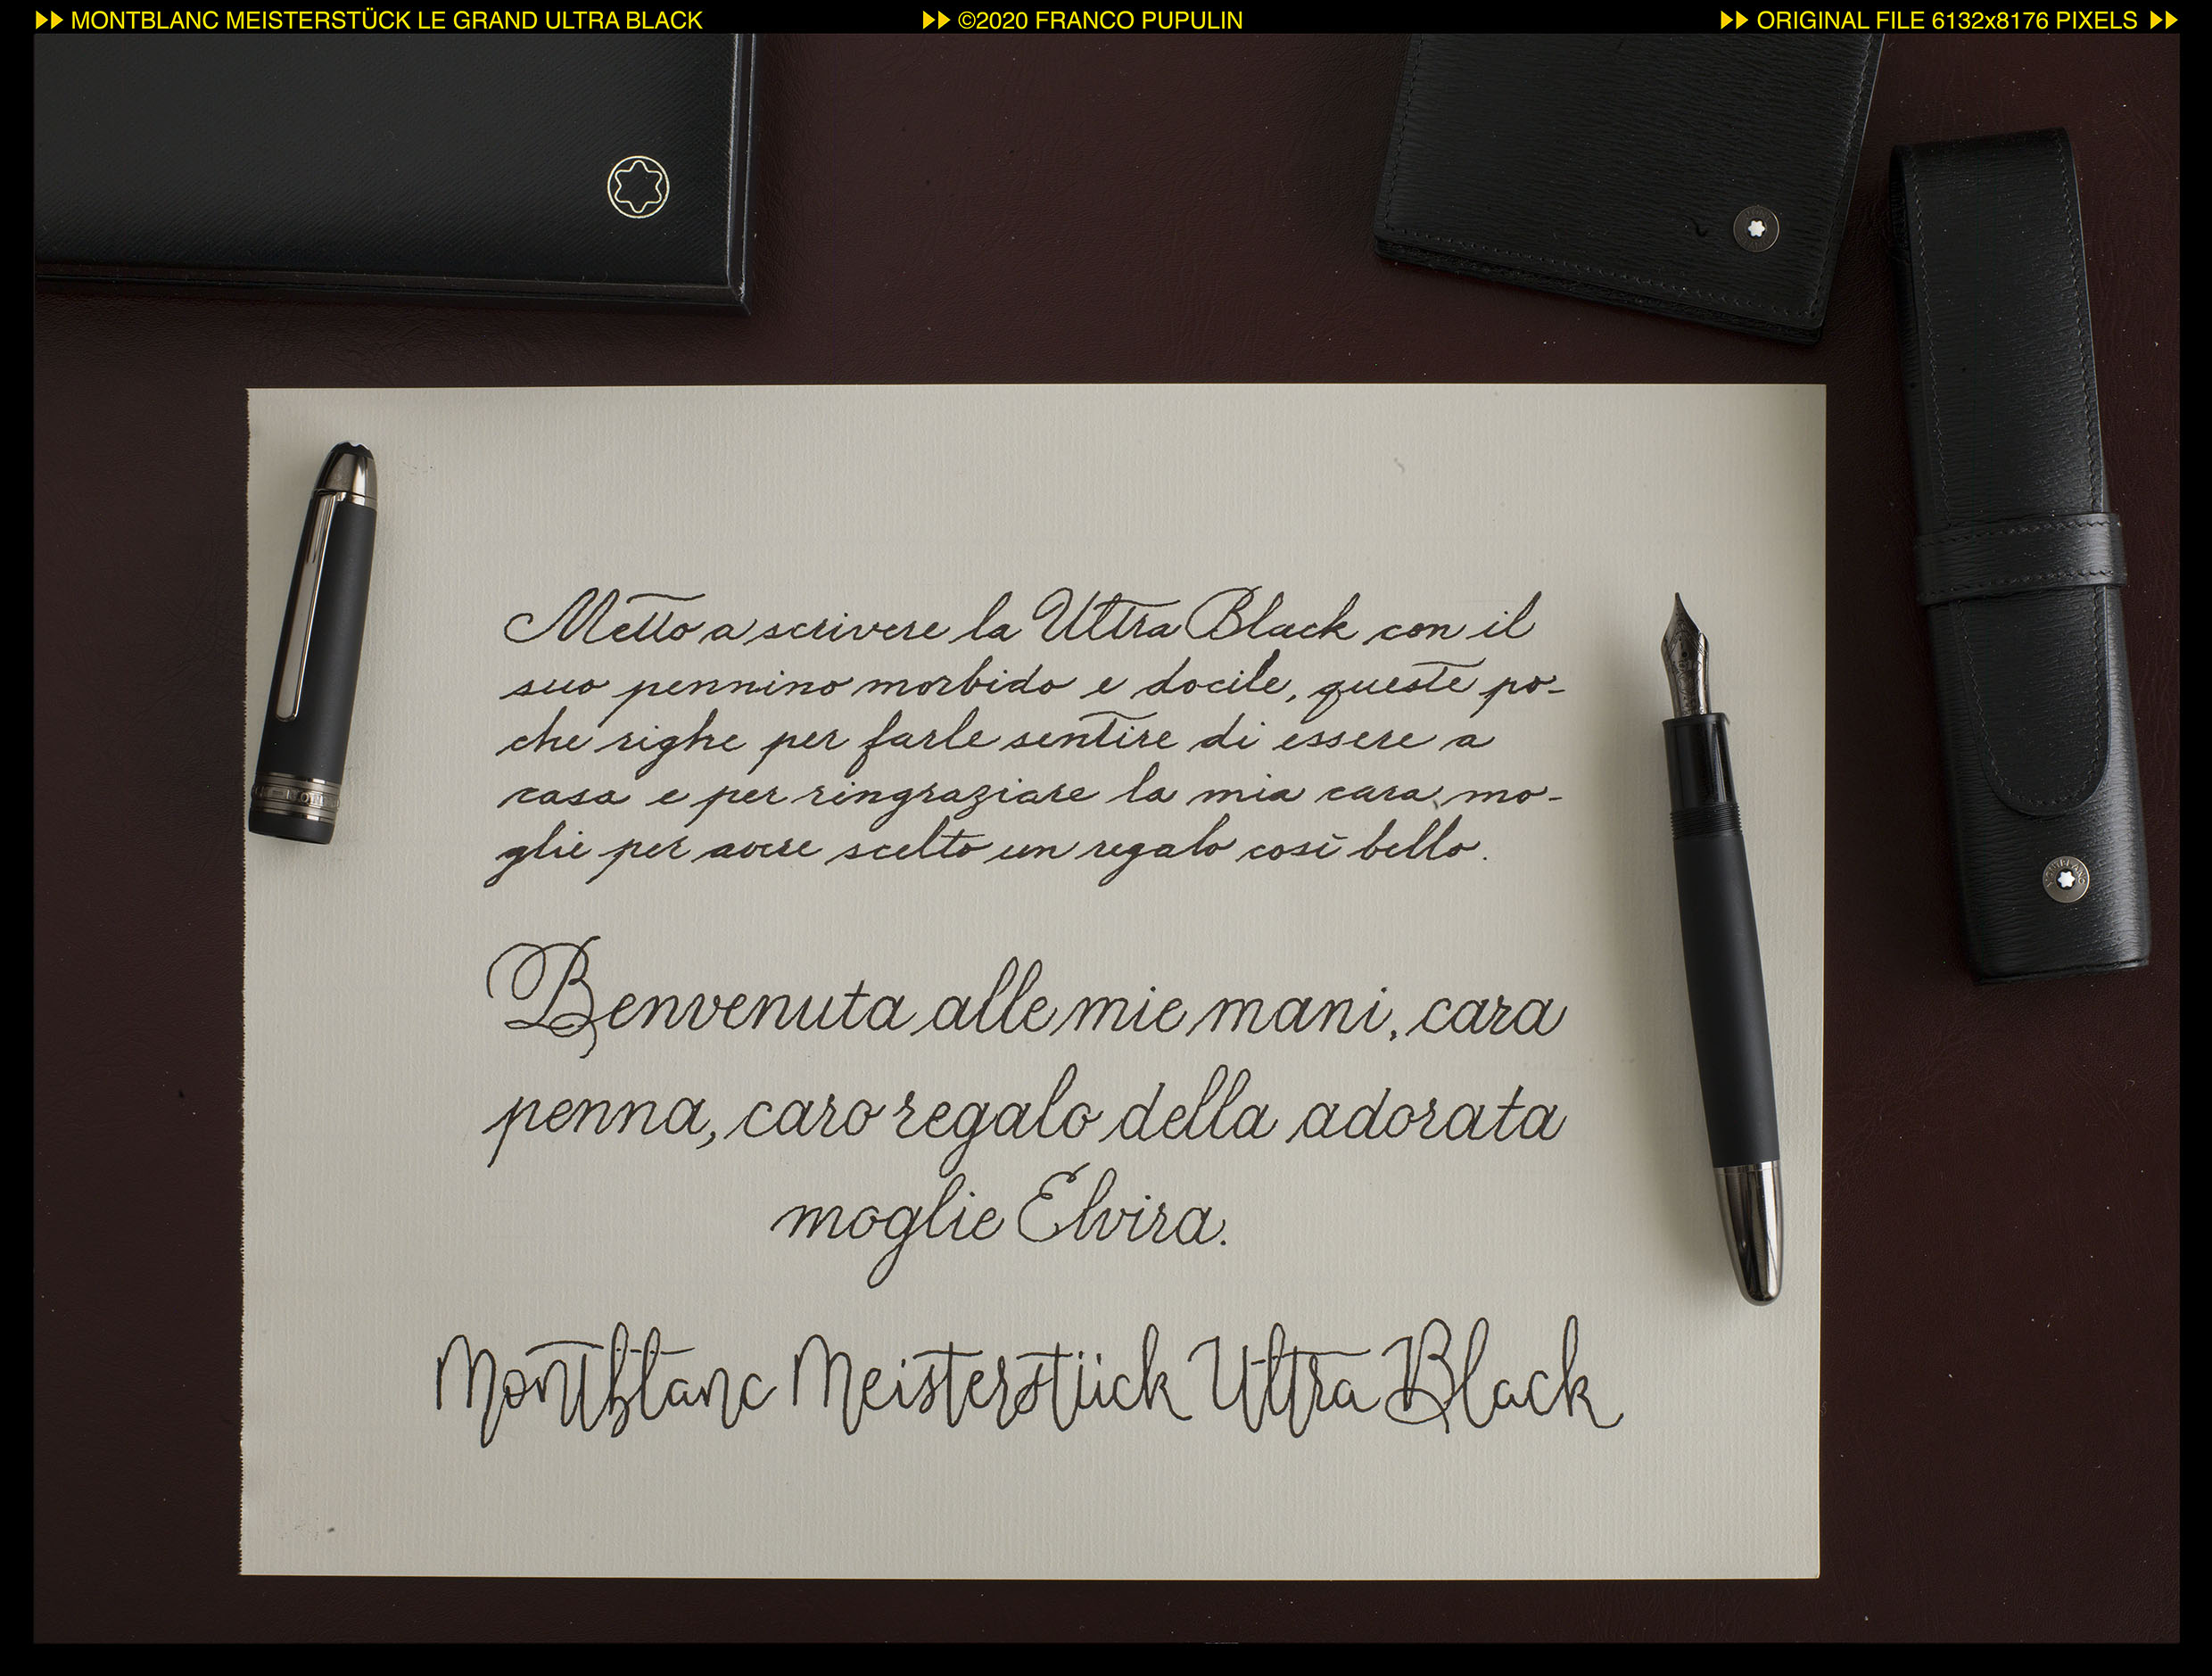 MONTBLANC MEISTERSTÜCK LE GRAND ULTRA BLACK
©2020 FRANCO PUPULIN
ORIGINAL FILE 6132x8176 PIXELS
Metto a scrivere la Ultra Black con il
suo pennino morbido e docile, queste po-
che righe per farle sentire di essere a
casa e per ringraziare la mia cara mo-
glie per avere scelto un regalo così bello.
Benvenuta alle mie mani, cara
penna, caro regalo della adorata
moglie Elvira.
Montblanc Meisterstück Ultra Black
MONTBLANC